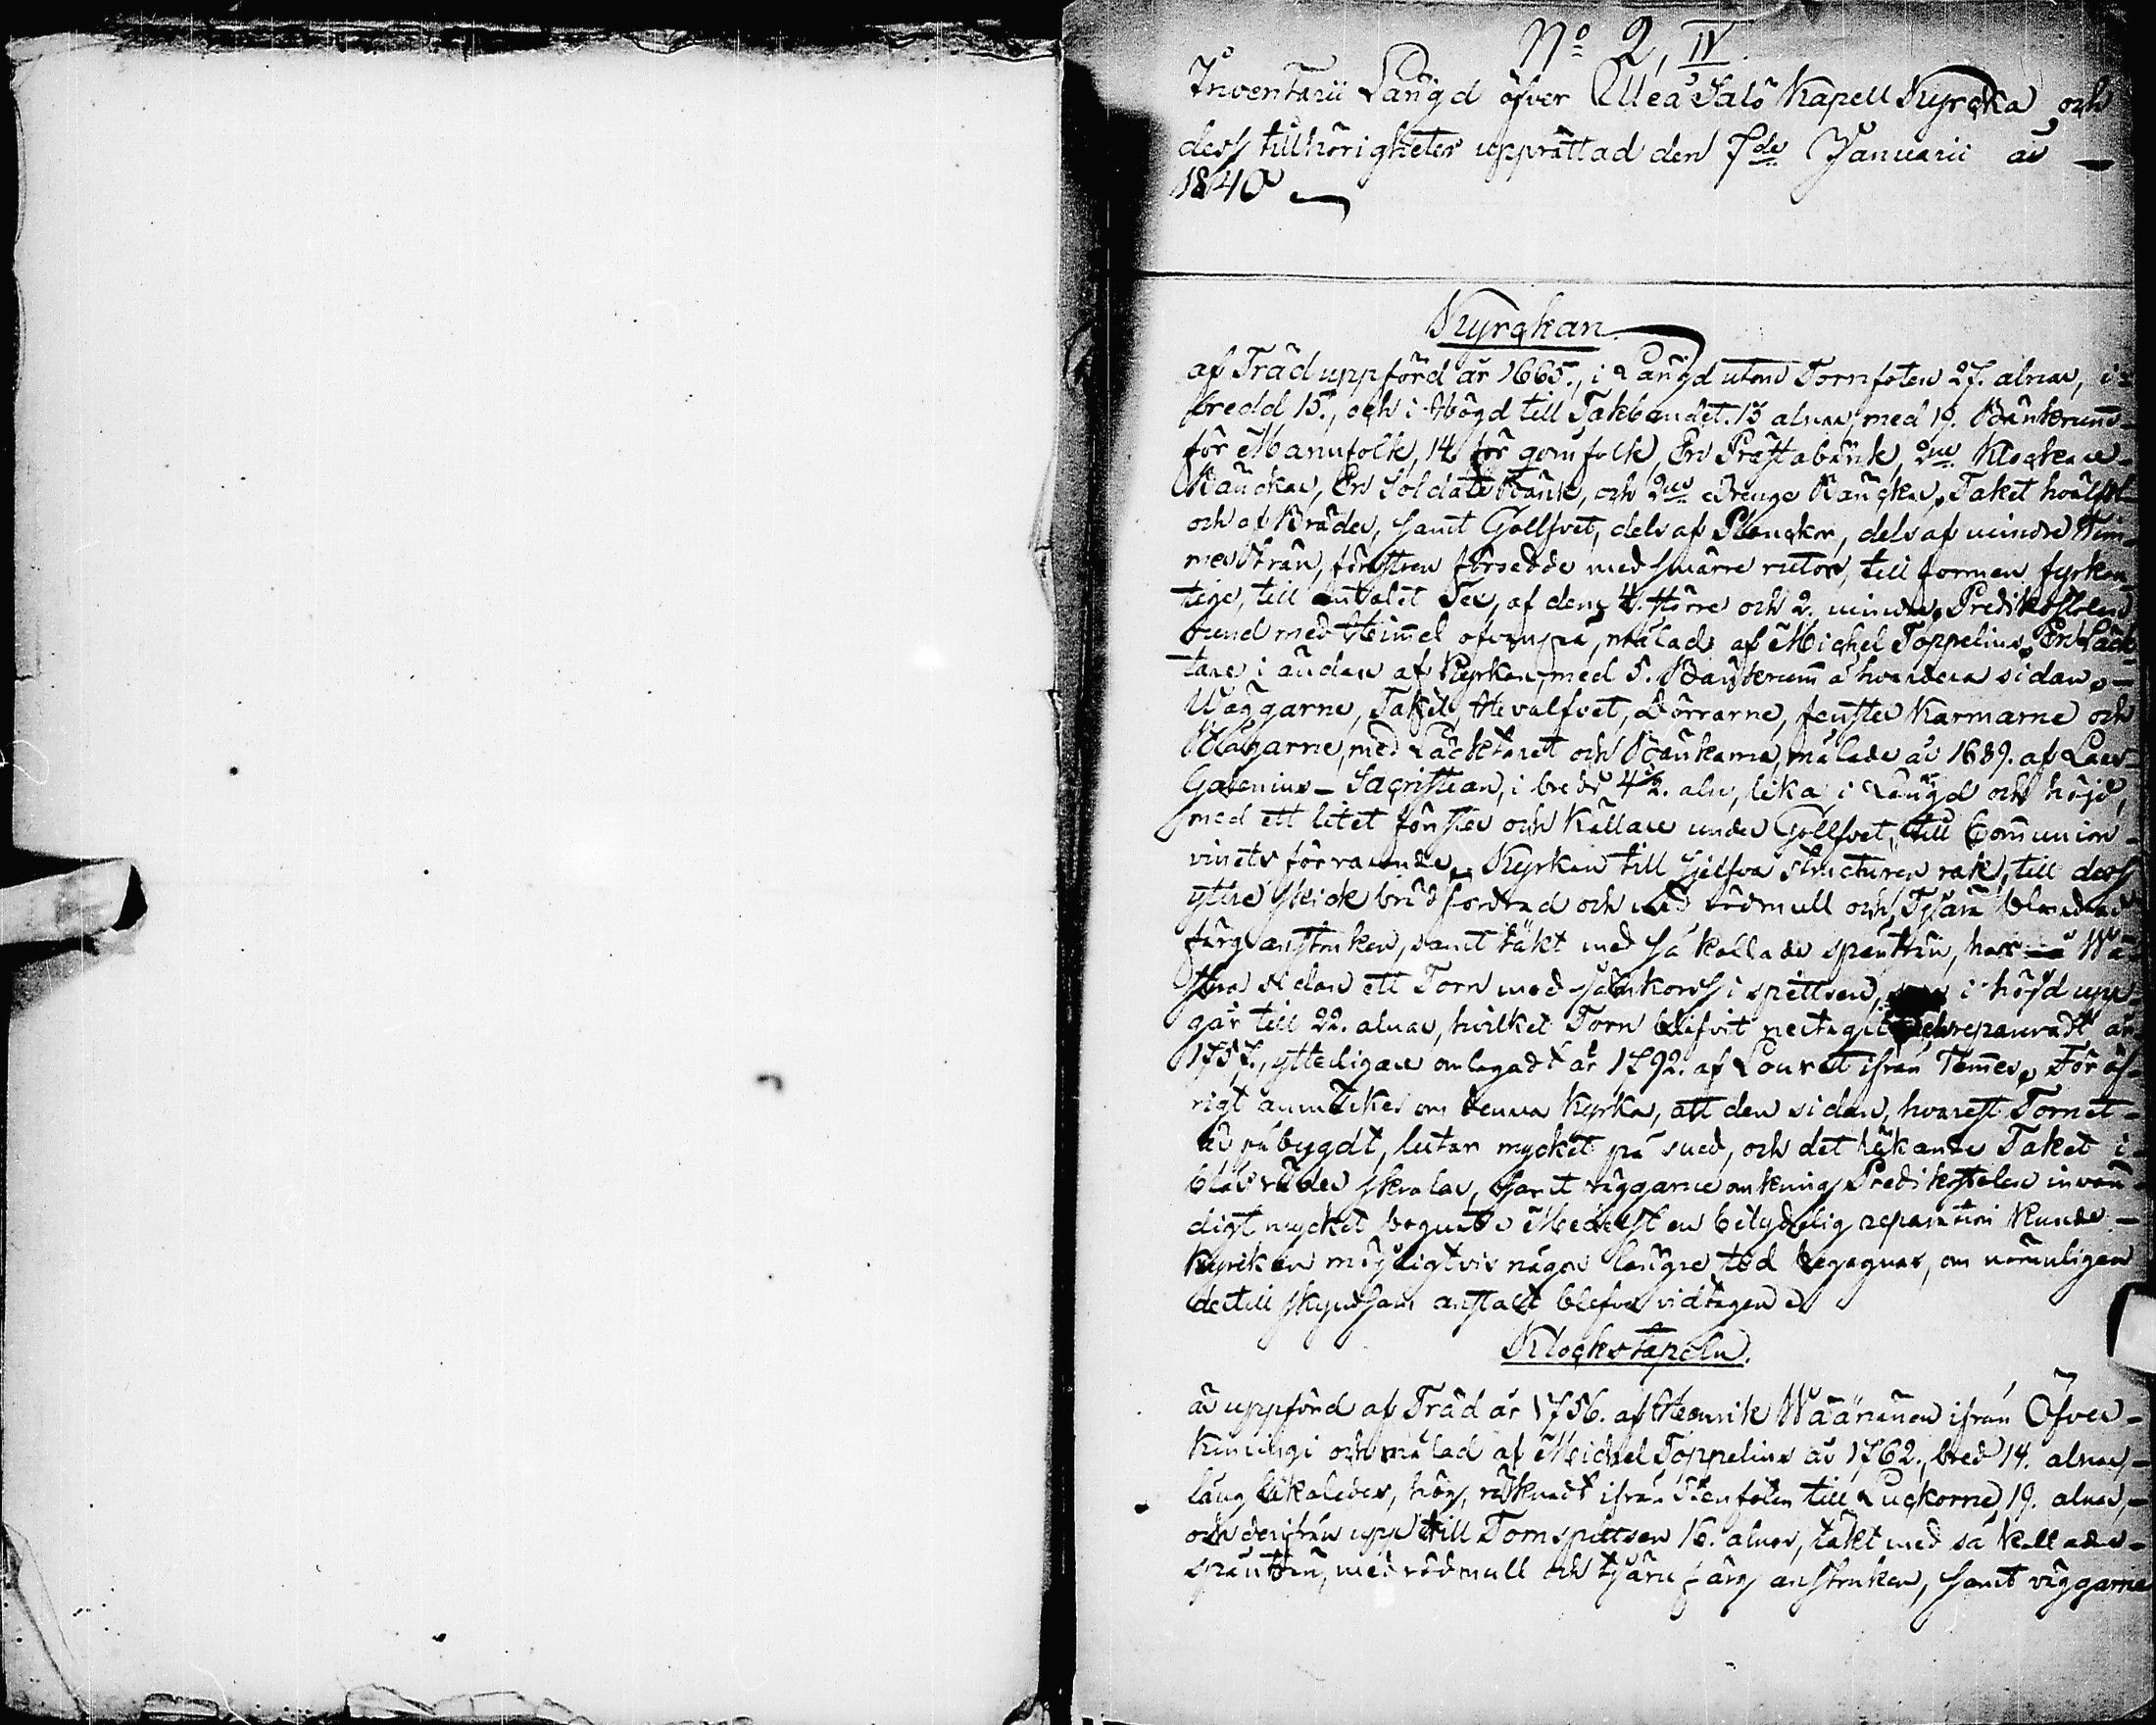 No 2, IV.
Inventarii Längd öfver Uleå Salo Kapell Kyrcka och
dess tillhörigheter upprättad den 7de Januarii år
1840
Kyrckan
af Träd uppförd år 1665., i Längd utom Tornfoten 27. alnar, i
bredd 15., och i Högd till Takbandet 13 alnar, med 19. Bänkerum
för Mannfolk, 14 för qvinfolk, En Prästabänk, 2ne Klockare
Bänckar, En Soldate Bänk, och 2ne Drenge Bänckar, Taket hvälft
och af Bräder, samt Gollfvet, dels af Planckor, dels af mindre Tim-
merträn, fönstren försedde med smärre rutor, till formen fyrkan-
tige, till antalet Sex, af dem 4. större och 2. mindre, Predikostolen
rund med Himmel ofvanpå, målad af Michel Toppelius, En Läck-
tare i ändan af Kyrkan, med 5. Bänkerum å hvardera sidan,
Wäggarne, Taket, Hvalfvet, Dörrarne, fenster Karmarne och
Bågarne, med Läcktaret och Bänkarna, målade år 1689. af Lars
Galenius - Sacristian, i bredd 4½. aln, lika i Längd och höjd,
med ett litet fönster och Källare under Gollfvet, till Communion
vinets förvarande, Kyrkan till sjelfva structuren rak, till dess
yttre skick brädfordrad och med rödmull och Tjära blandad
färg anstruken, samt täkt med så kallade spåntrån, har Wä-
stra sidan ett Torn med järnkors i spittsen, i höjd upp
går till 22. alnar, hvilket Torn blifvit nertagit repareradt år
1757., ytterligare omlagadt år 1792. af Louret ifrån Temmes, För öf-
rigt anmärkes om denna Kyrka, att den sidan, hvarest Tornet
är påbygdt, lutar mycket på sned, och det täkande Taket i
blåsväder skralar, samt väggarne omkring Predikostolen invän-
digt mycket Medelst en betydelig reparation kunde
Kyrkan möjligtvis någon längre tid begagnas, om nämligen
dertill skyndsam anstalt blefve vidtagen
Klockstapeln.
är uppförd af Träd år 1756. af Henrik Wäänänen ifrån Öfver-
Kiminge och målad af Michel Toppelius år 1762., bred 14. alnar,
lång likaledes, hög, räknadt ifrån Stenfoten till Luckorne 19. alnar,
och derifrån upp till Tornspittsen 16. alnar, täkt med så kallade
spåntrån, med rödmull och tjäru färg anstruken, samt väggarne